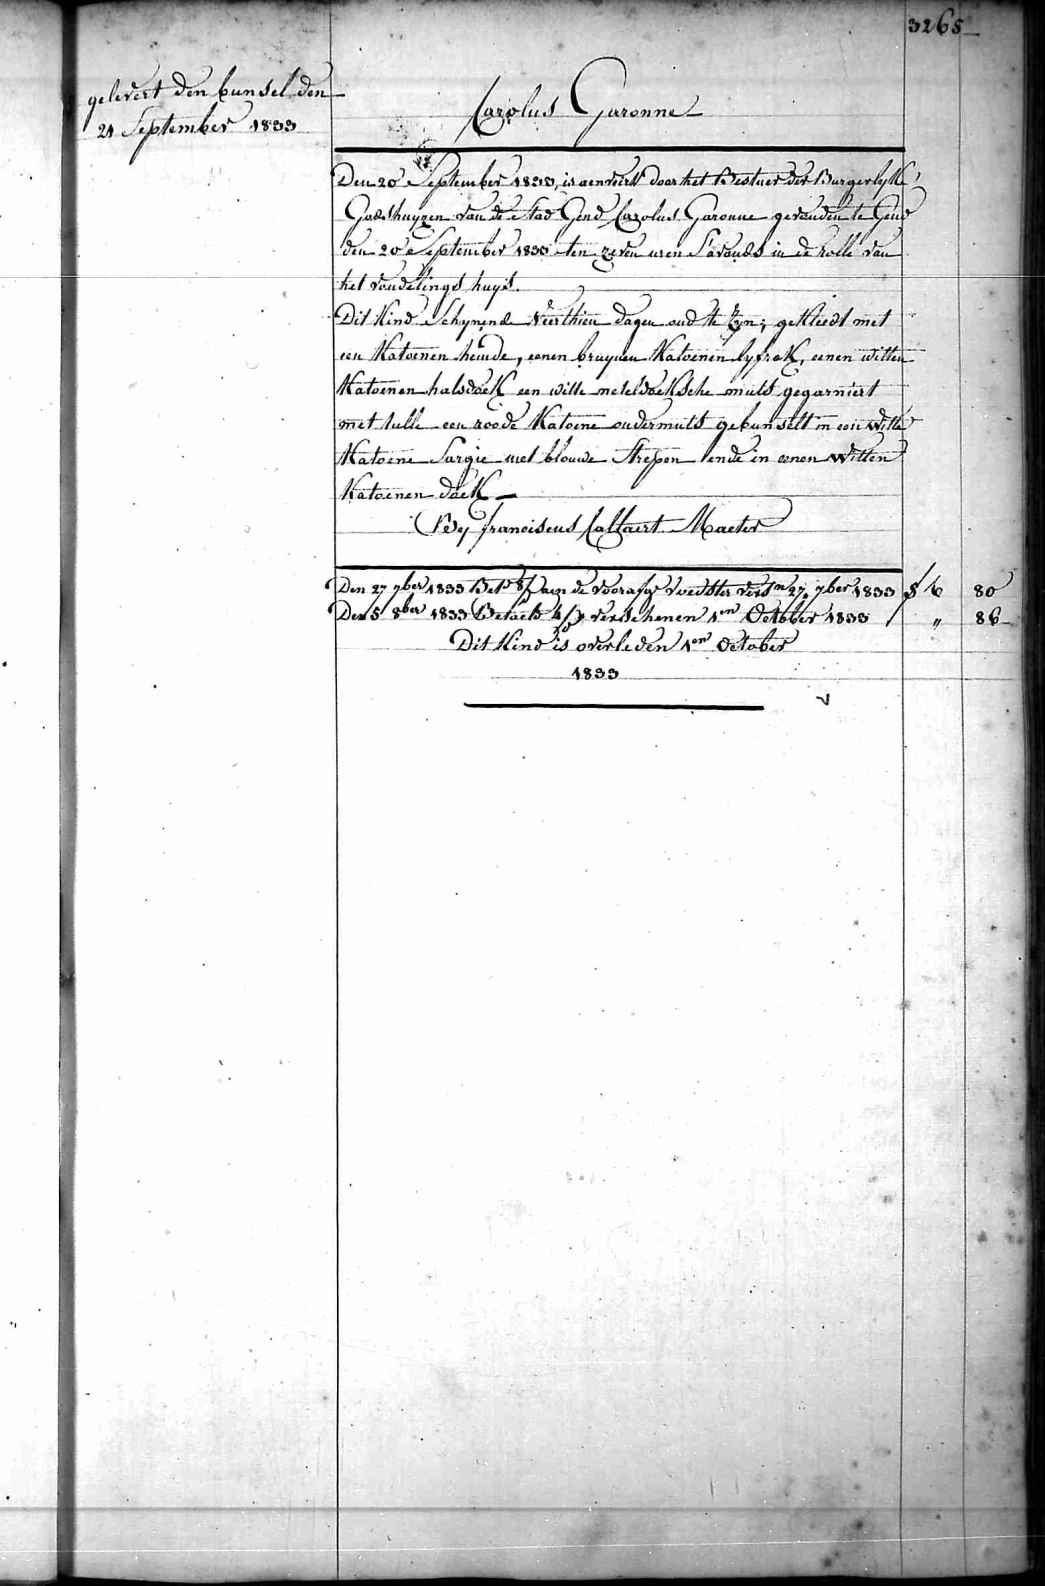 3265
gelevert den bunsel den
21 September 1833
Carolus Garonne
Den 20 September 1833, is aenveert door het Bestuer der Burgerlyke
Godshuyzen van de Stad Gend Carolus Garonne gevonden te Gend
den 20 September 1833 ten zeven uren S'avonds in de rolle van
het vondelings huys.
Dit Kind Schynende Veerthien dagen oud te Zyn; gekleedt met
een Katoenen hemde, eenen bruynen Katoenen lyfrok, eenen witten
Katoenen halsdoek een witte neteldoeksche muts gegarniert
met tulle een roode Katoene ondermuts gebunselt in een Witte
Katoene Sargie met blouwe Strepen ende in eenen Witten
Katoenen doek
By franciscus Callaert Maeter
Den 27 7ber 1833 aen de voorafge voedster 27 7ber 1833 80
Den 5 8ber 1833 Betaelt verschenen 1en October 1833 " 86
Dit Kind is overleden 1en October
1833